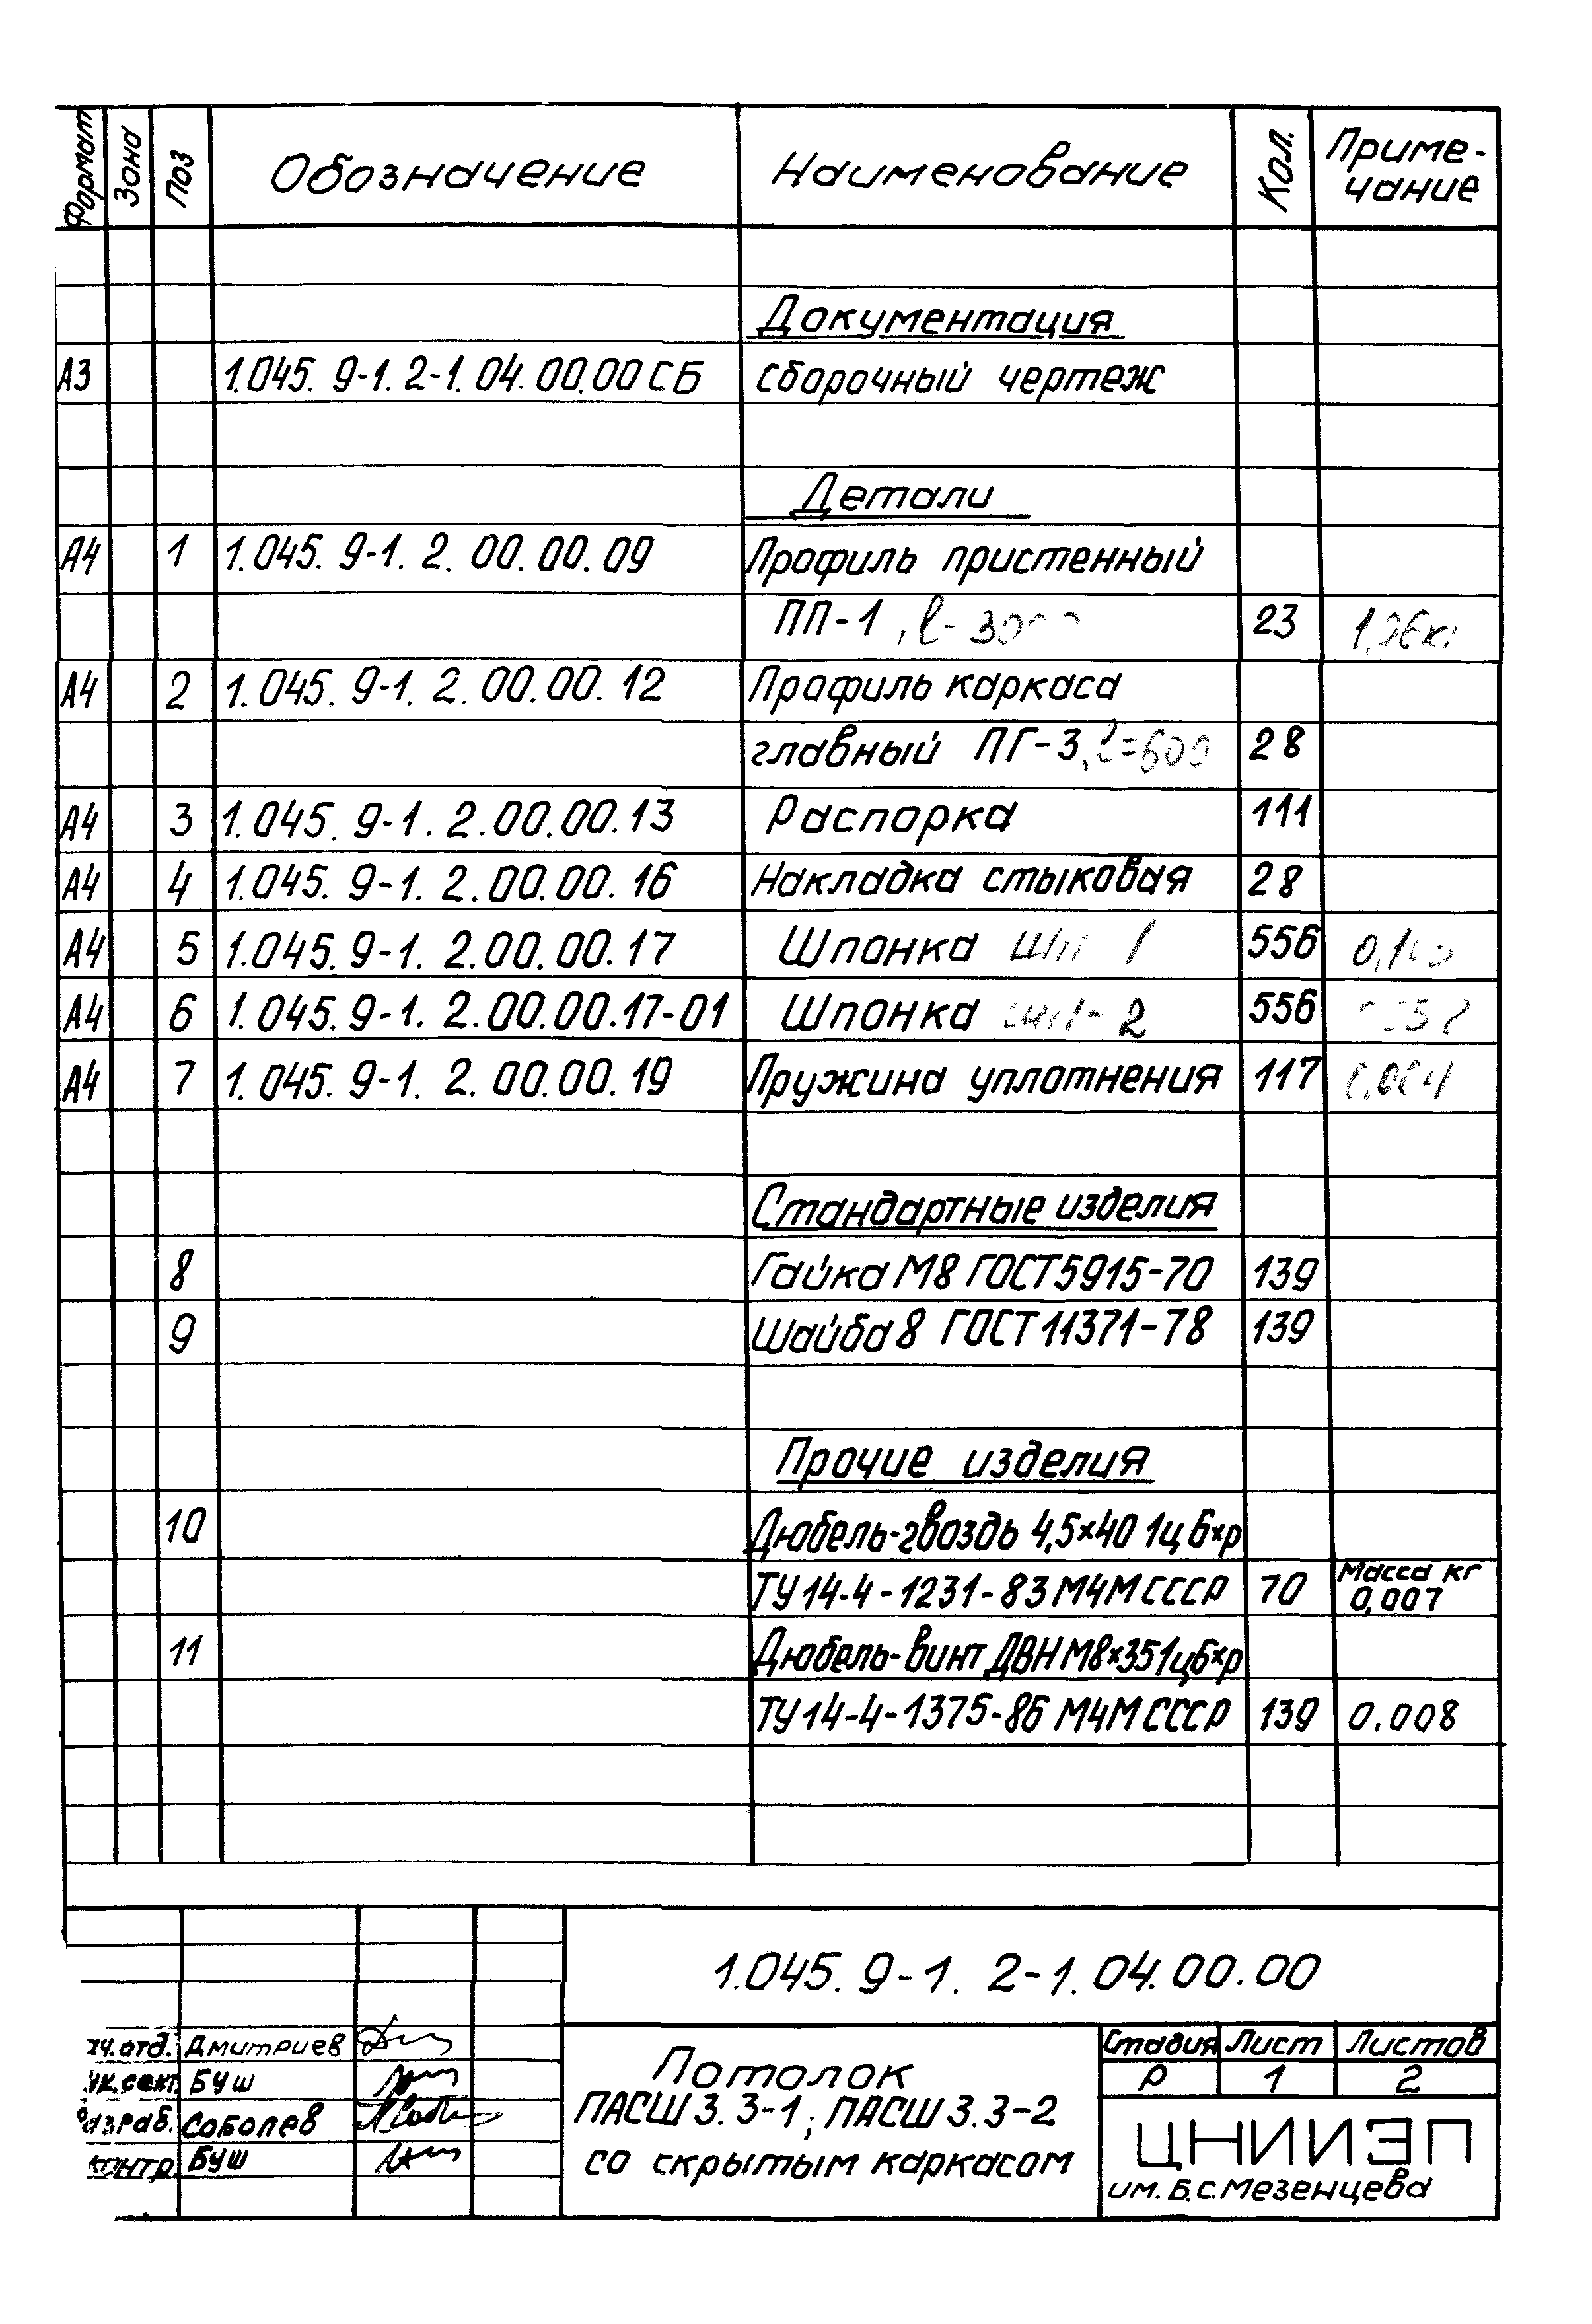 Формат Зона Поз Обозначение Наименование Кол. Приме-
чание
Документация
А3 1.045. 9-1. 2-1. 04. 00.00 СБ сборочный чертеж
Детали
А4 1 1.045. 9-1. 2. 00. 00. 09 Профиль пристенный
ПП-1 23
А4 2 1.045. 9-1. 2. 00. 00. 12 Профиль каркаса
главный ПГ-3, l=600 28
А4 3 1.045. 9-1. 2. 00. 00. 13 Распорка 111
А4 4 1.045. 9-1. 2. 00. 00. 16 Накладка стыковая 28
А4 5 1.045. 9-1. 2. 00. 00. 17 Шпонка 556
А4 6 1.045. 9-1. 2. 00. 00. 17-01 Шпонка 556
А4 7 1.045. 9-1. 2. 00. 00. 19 Пружина уплотнения 117
Стандартные изделия
8 Гайка М8 ГОСТ 5915-70 139
9 Шайба 8 ГОСТ 11371-78 139
Прочие изделия
10 Дюбель-гвоздь 4,5×40 1ц 6хр
ТУ 14-4-1231-83 МЧМ СССР 70 Масса кг
0,007
11 Дюбель-винт ДВН М8×35 1ц6хр
ТУ 14-4-1375-86 МЧМ СССР 139 0.008
1.045. 9-1. 2-1. 04. 00. 00
отд. Дмитриев
сект. Буш
Разраб. Соболев
контр. Буш
Потолок
ПАСШ 3. 3-1; ПАСШ 3. 3-2
со скрытым каркасом
Стадия Лист Листов
Р 1 2
ЦНИИЭП
им. Б.С. Мезенцева